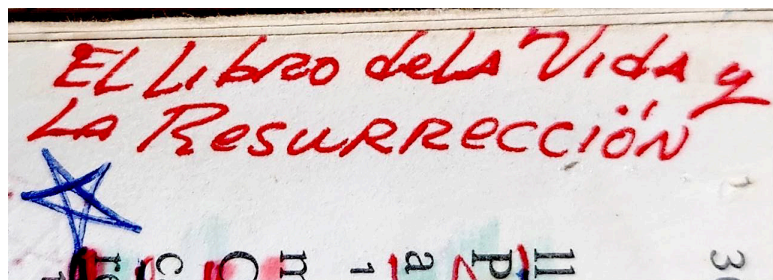 EL LIbRO deLA VIdA y
LA RESURRECCIÓN